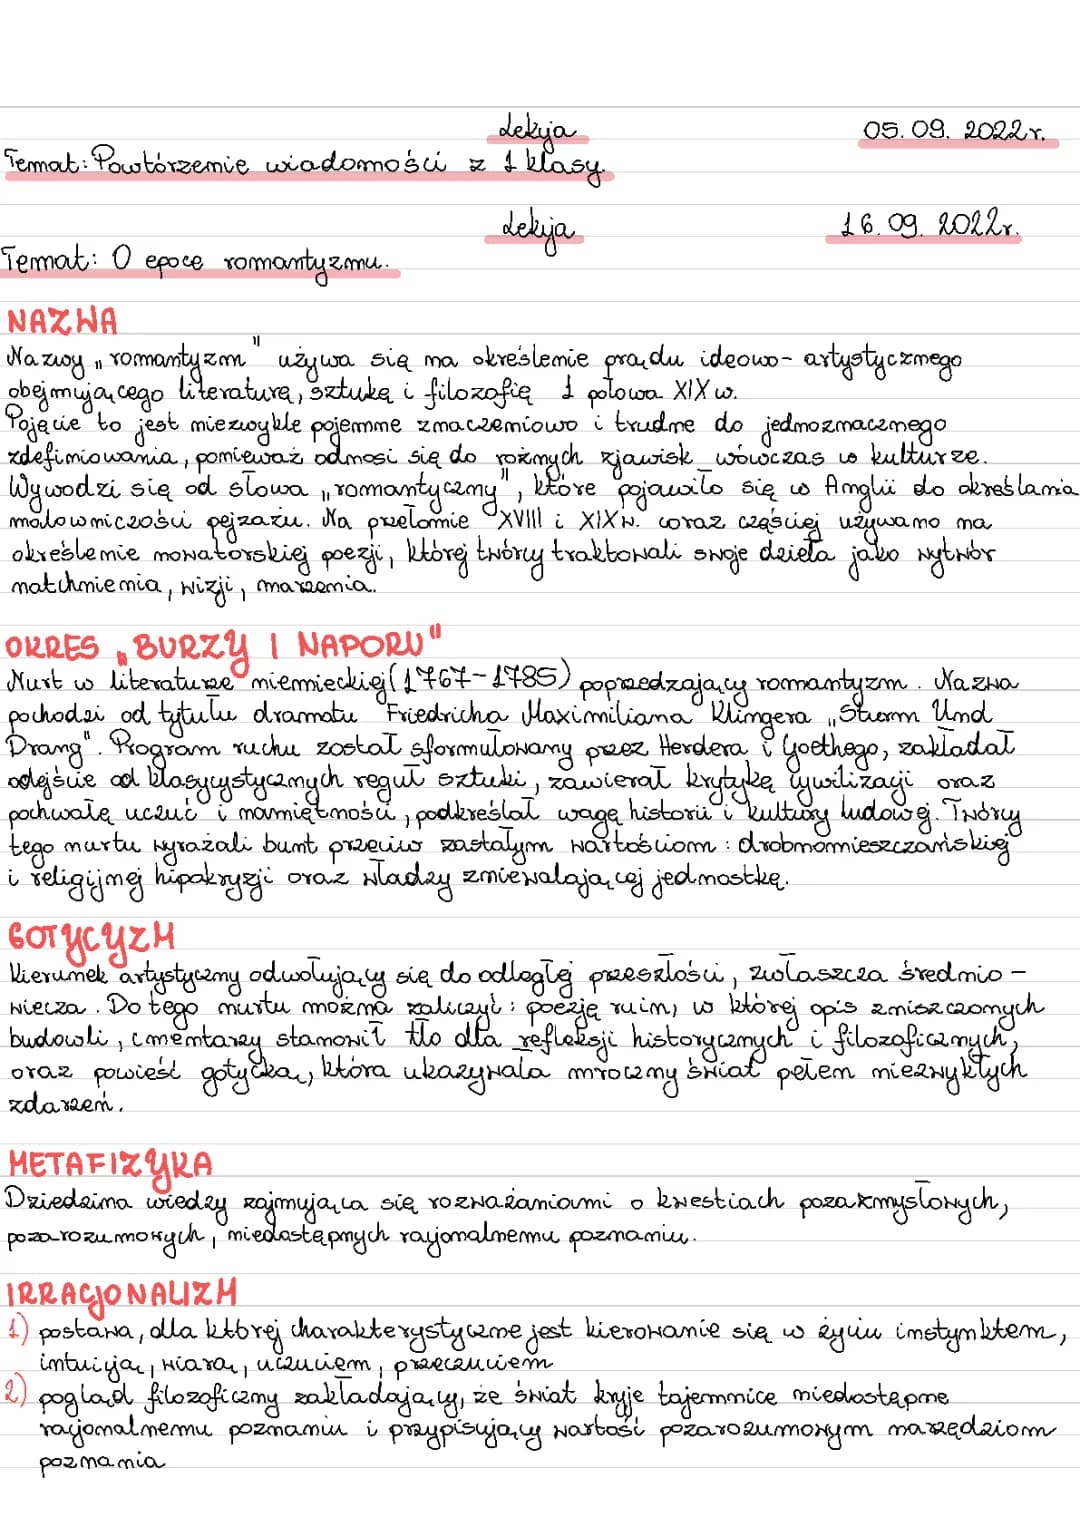 Lekcja 05.09.2022r.
Temat: Powtórzenie wiadomości z 1 klasy.
Lekcja 16.09.2022r.
Temat: O epoce romantyzmu.
NAZWA
Nazwy „romantyzm" używa się na określenie prądu ideowo-artystycznego
obejmującego literaturę, sztukę i filozofię 1 połowa XIXw.
Pojęcie to jest niezwykle pojemne znaczeniowo i trudne do jednoznacznego
zdefiniowania, ponieważ odnosi się do rożnych zjawisk wówczas w kulturze.
Wywodzi się od słowa „romantyczny", które pojawiło się w Anglii do określania
malowniczości pejzażu. Na przełomie XVIII i XIXw. coraz częściej używano na
określenie nowatorskiej poezji, której twórcy traktowali swoje dzieła jako wytwór
natchnienia, wizji, marzenia.
OKRES „BURZY I NAPORU"
Nurt w literaturze niemieckiej (1767-1785) poprzedzający romantyzm. Nazwa
pochodzi od tytułu dramatu Friedricha Maximiliana Klingera „Sturm Und
Drang". Program ruchu został sformułowany przez Herdera i Goethego, zakładał
odejście od klasycystycznych reguł sztuki, zawierał krytykę cywilizacji oraz
pochwałę uczuć i namiętności, podkreślał wagę historii i kultury ludowej. Twórcy
tego nurtu wyrażali bunt przeciw zastałym wartościom: drobnomieszczańskiej
i religijnej hipokryzji oraz władzy zniewalającej jednostkę.
GOTYCYZM
Kierunek artystyczny odwołujący się do odległej przeszłości, zwłaszcza średnio-
wiecza. Do tego nurtu można zaliczyć: poezję ruin, w której opis zniszczonych
budowli, cmentarzy stanowił tło dla refleksji historycznych i filozoficznych,
oraz powieść gotycką, która ukazywała mroczny świat pełen niezwykłych
zdarzeń.
METAFIZYKA
Dziedzina wiedzy zajmująca się rozważaniami o kwestiach pozazmysłowych,
pozarozumowych, niedostępnych racjonalnemu poznaniu.
IRRACJONALIZM
1) postawa, dla której charakterystyczne jest kierowanie się w życiu instynktem,
intuicją, wiarą, uczuciem, przeczuciem
2) pogląd filozoficzny zakładający, że świat kryje tajemnice niedostępne
racjonalnemu poznaniu i przypisujący wartość pozarozumowym narzędziom
poznania